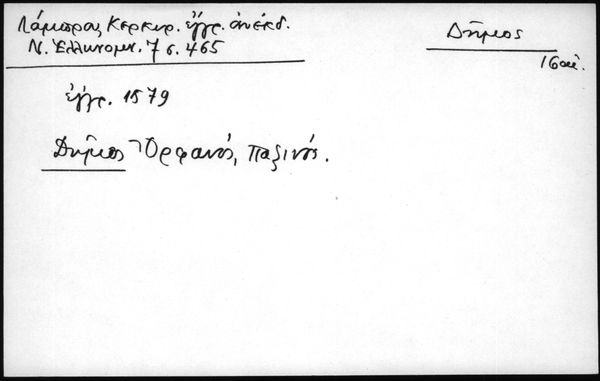 Λάμπρου, Κερκυρ. ἔγγρ. ἀνέκδ.
Ν. Ἑλληνομν. 7 σ. 465
Δῆμος
16 αἰ.
ἔγγρ. 1579
Δῆμος Ὀρφανός, Παξινός.